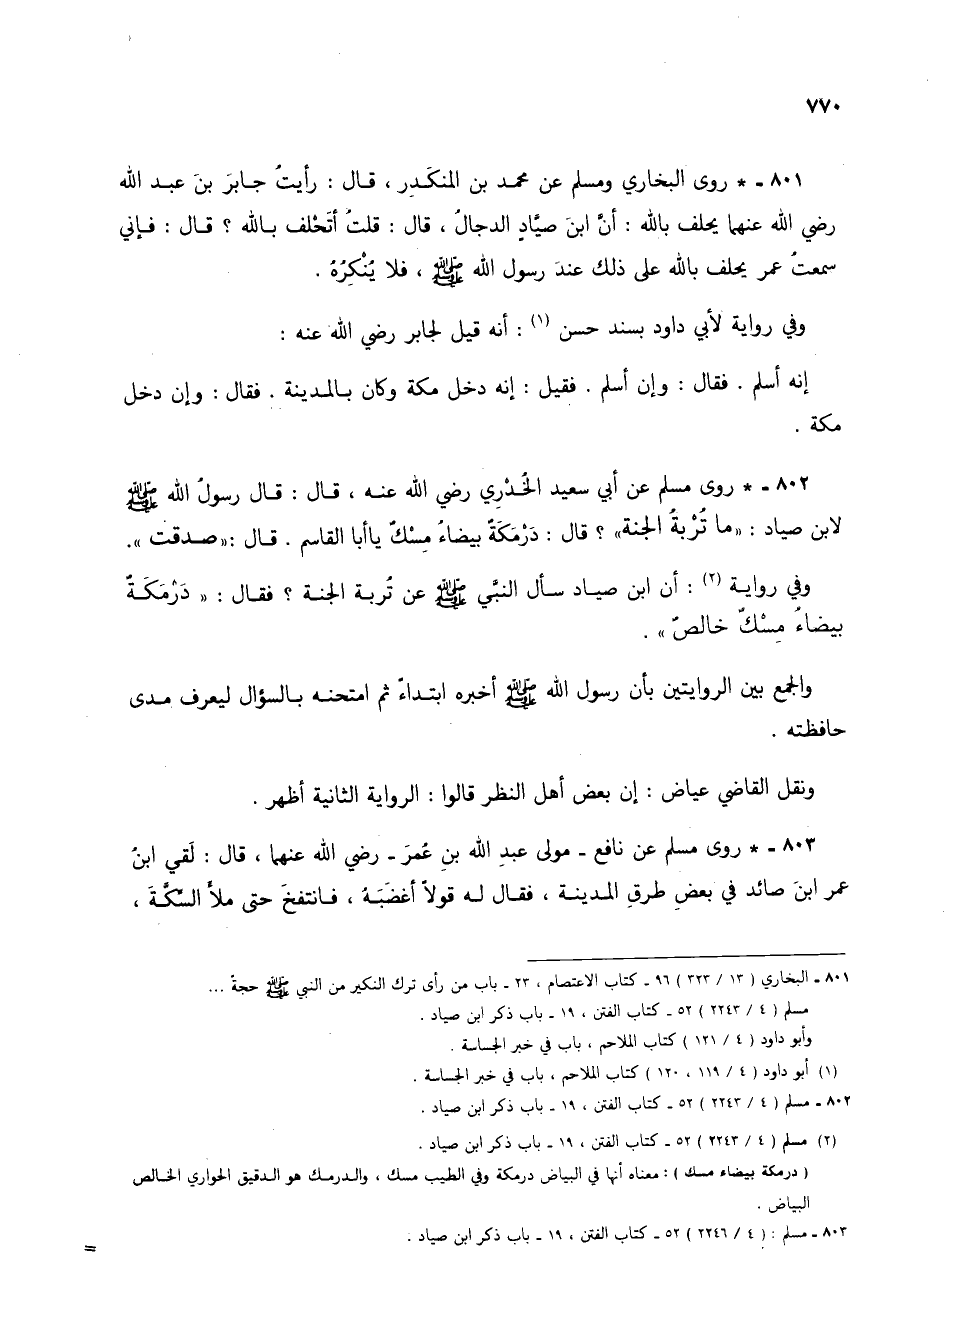 ٧٧٠
٨٠١ - * روى البخاري ومسلم عن محمد بن المنكَدِر ، قـال : رأيتُ جـابرَ بنَ عبـد الله
رضي الله عنهما يحلف بالله : أنَّ ابنَ صيَّادٍ الدجالُ ، قال : قلتُ أتَحْلف بـالله ؟ قـال : فـإني
سمعتُ عمر يحلف بالله على ذلك عندَ رسول الله ﷺ ، فلا يُنْكِرُهُ .
وفي رواية لأبي داود بسند حسن (١) : أنه قيل لجابر رضي الله عنه :
إنه أسلم . فقال : وإن أسلم . فقيل : إنه دخل مكة وكان بـالمـدينة . فقال : وإن دخل
مكة .
٨٠٢ - * روى مسلم عن أبي سعيد الخُدْرِي رضي الله عنـه ، قـال : قـال رسولُ الله ﷺ
لابن صياد : «ما تُرْبةُ الجنة» ؟ قال : دَرْمَكَةً بيضاءُ مِسْكٌ ياأبا القاسم . قـال :«صـدقت ».
وفي روايـة (٢) : أن ابن صيـاد سـأل النبَّي ﷺ عن تُربـة الجنـة ؟ فقـال : « دَرْمَكَـةٌ
بيضاءُ مِسْكٌ خالصٌ » .
والجمع بين الروايتين بأن رسول الله ﷺ أخبره ابتـداءً ثم امتحنـه بـالسؤال ليعرف مـدى
حافظته .
ونقل القاضي عياض : إن بعض أهل النظر قالوا : الرواية الثانية أظهر .
٨٠٣ - * روى مسلم عن نافع - مولى عبدِ الله بنِ عُمرَ - رضي الله عنهما ، قال : لَقي ابنُ
عمر ابنَ صائد في بعضِ طرقِ المـدينـة ، فقـال لـه قولاً أغضَبَـهُ ، فـانتفخَ حتى ملأَ السِّكَّةَ ،
٨٠١ - البخاري ( ١٣ / ٣٢٣ ) ٩٦ - كتاب الاعتصام ، ٢٣ - باب من رأى ترك النكير من النبي ﷺ حجةً ...
مسلم ( ٤ / ٢٢٤٣ ) ٥٢ - كتاب الفتن ، ١٩ - باب ذكر ابن صياد .
وأبو داود ( ٤ / ١٢١ ) كتاب الملاحم ، باب في خبر الجساسة .
(١) أبو داود ( ٤ / ١١٩ ، ١٢٠ ) كتاب الملاحم ، باب في خبر الجساسة .
٨٠٢ - مسلم ( ٤ / ٢٢٤٣ ) ٥٢ - كتاب الفتن ، ١٩ - باب ذكر ابن صياد .
(٢) مسلم ( ٤ / ٢٢٤٣ ) ٥٢ - كتاب الفتن ، ١٩ - باب ذكر ابن صياد .
( درمكة بيضاء مسك ) : معناه أنها في البياض درمكة وفي الطيب مسك ، والـدرمـك هو الـدقيق الحواري الخـالص
البياض .
٨٠٣ - مسلم : ( ٤ / ٢٢٤٦ ) ٥٢ - كتاب الفتن ، ١٩ - باب ذكر ابن صياد .
=